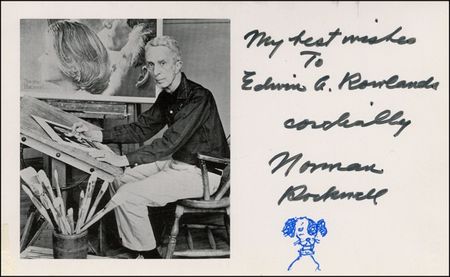 My best wishes
To
Edwin G. Rowlands
cordially
Norman
Rockwell